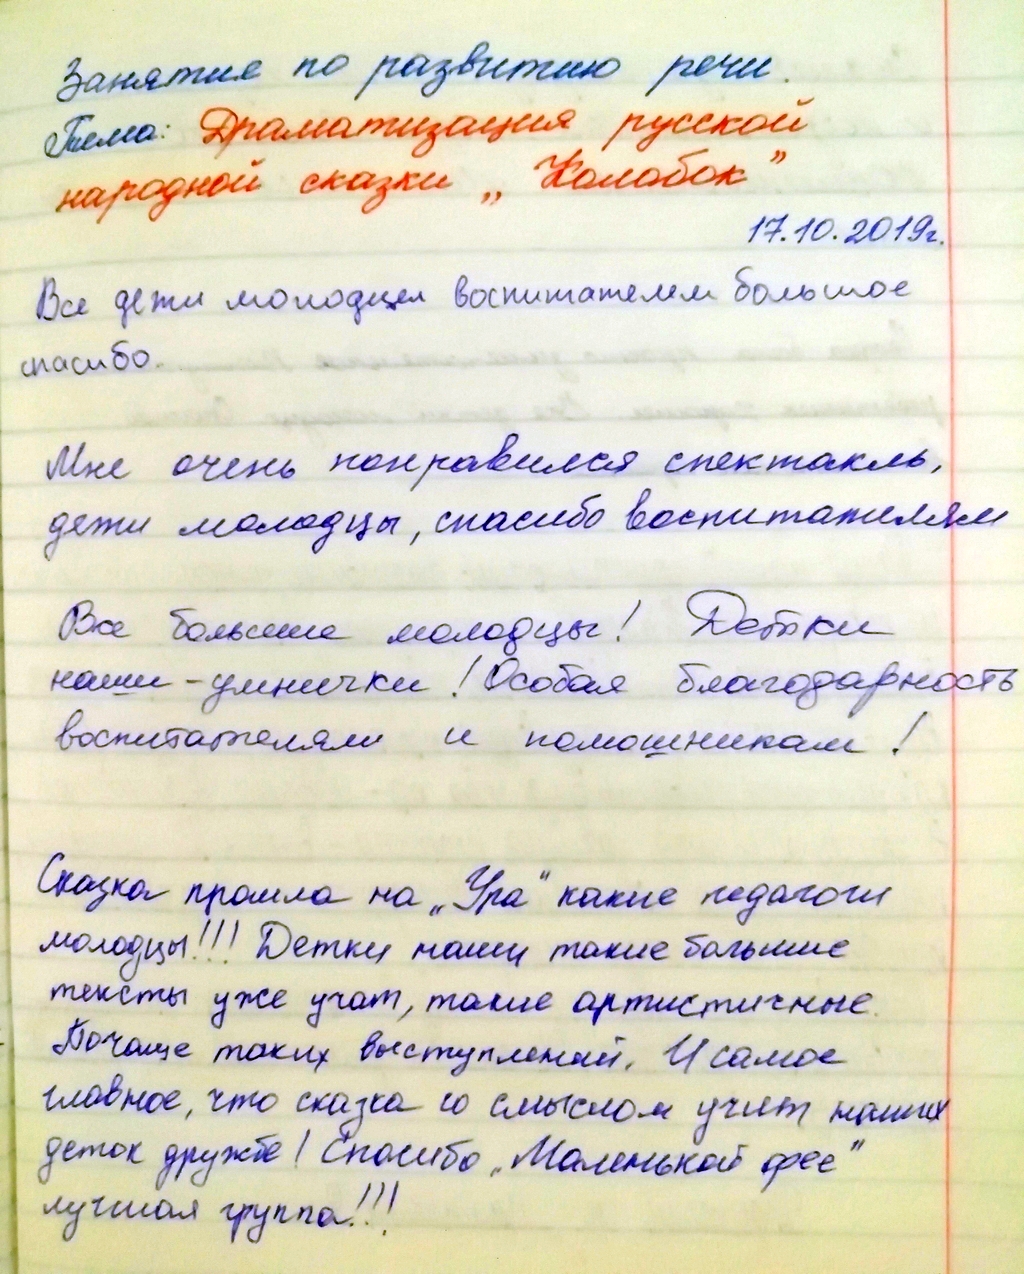 Занятие по развитию речи.
Тема: Драматизация русской
народной сказки „Колобок”
17.10.2019г.
Все дети молодцы воспитателем большое
спасибо.
Мне очень понравился спектакль,
дети молодцы, спасибо воспитателям
Все большие молодцы! Детки
наши - умнички! Особая благодарность
воспитателям и помошникам!
Сказка прошла на „Ура“ какие педагоги
молодцы!!! Детки наши такие большие
тексты уже учат, такие артистичные.
Почаще таких выступлений. И самое
главное, что сказка со смыслом учит наших
деток дружбе! Спасибо „Маленькой фее”
лучшая группа!!!